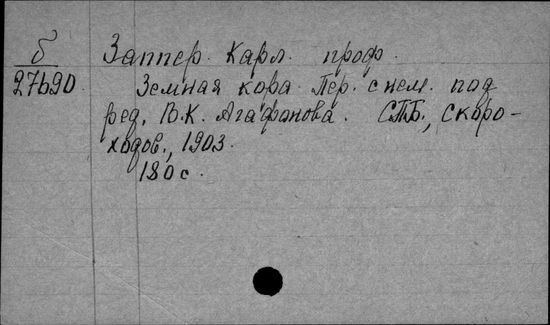 б Заппер. Карл. проф.
27690. Земная кора. Пер. с нем. под
ред. В.К. Агафонова. СПБ., Скоро-
ходов, 1903.
180 с.